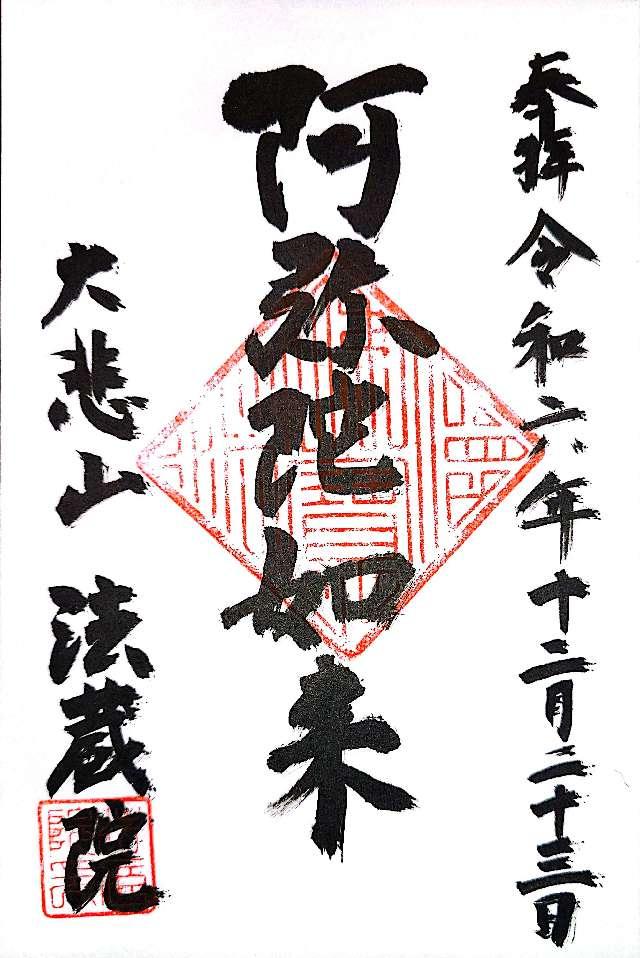 奉拝 令和六年十二月二十三日
阿弥陀如来
大悲山 法蔵院